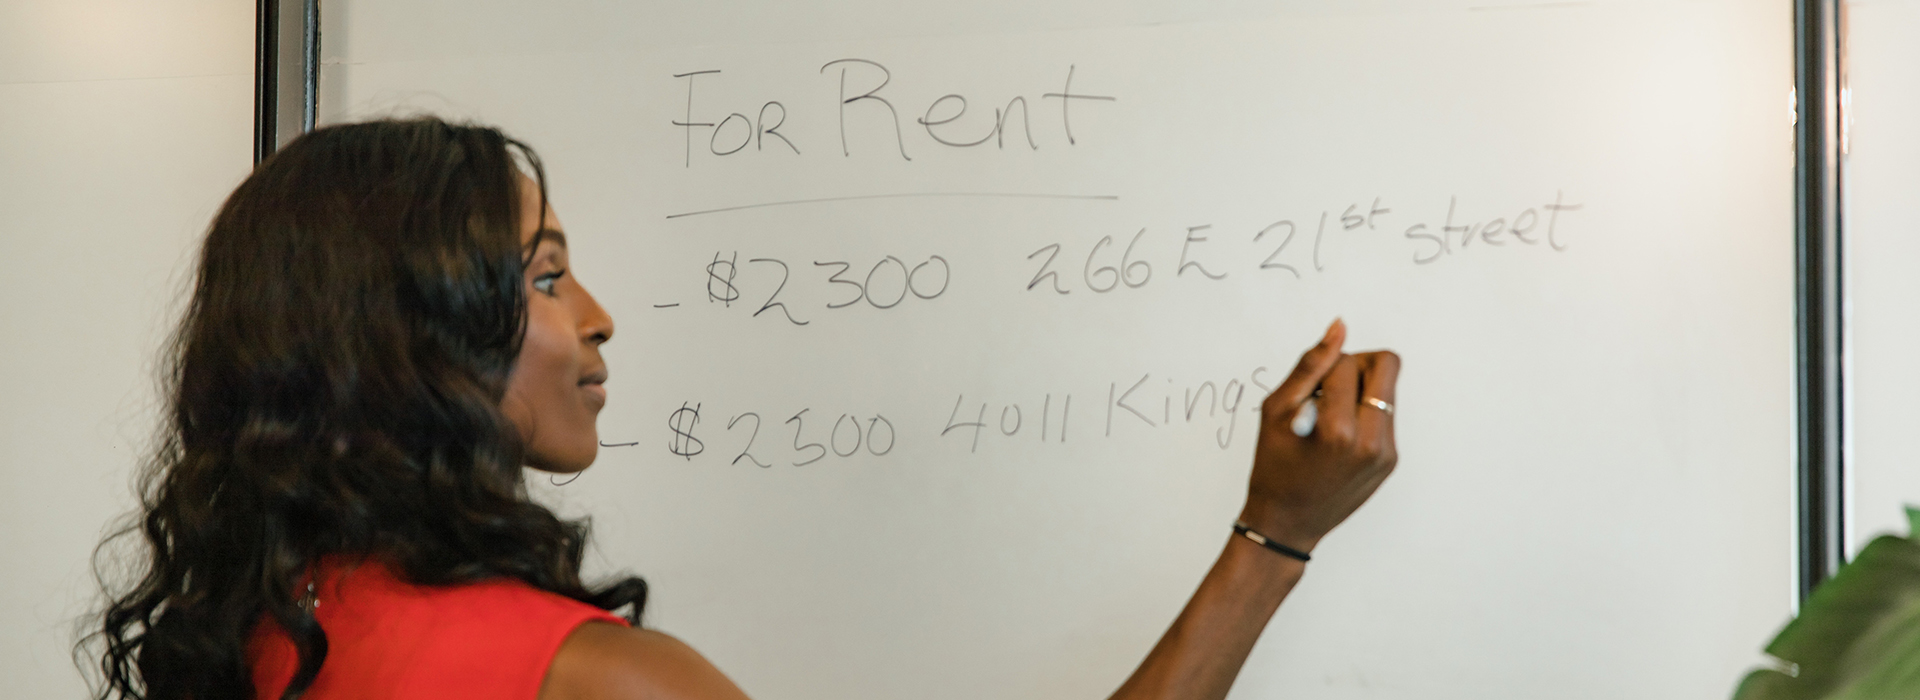 For Rent
- $2300 266 E 21st street
- $2500 4011 Kings